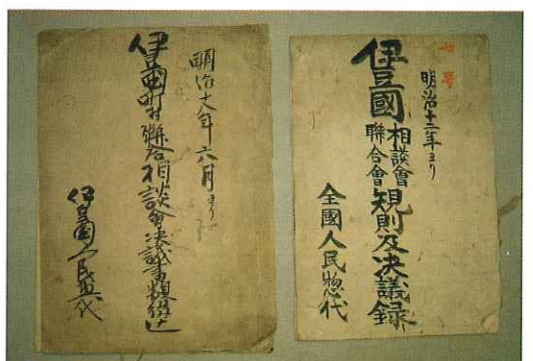 明治十二年ヨリ
伊豆國
相談會
聯合會
規則及決議録
全國人民惣代
六月より
伊豆國町村聯合相談會決議書類綴込
伊豆國人民惣代